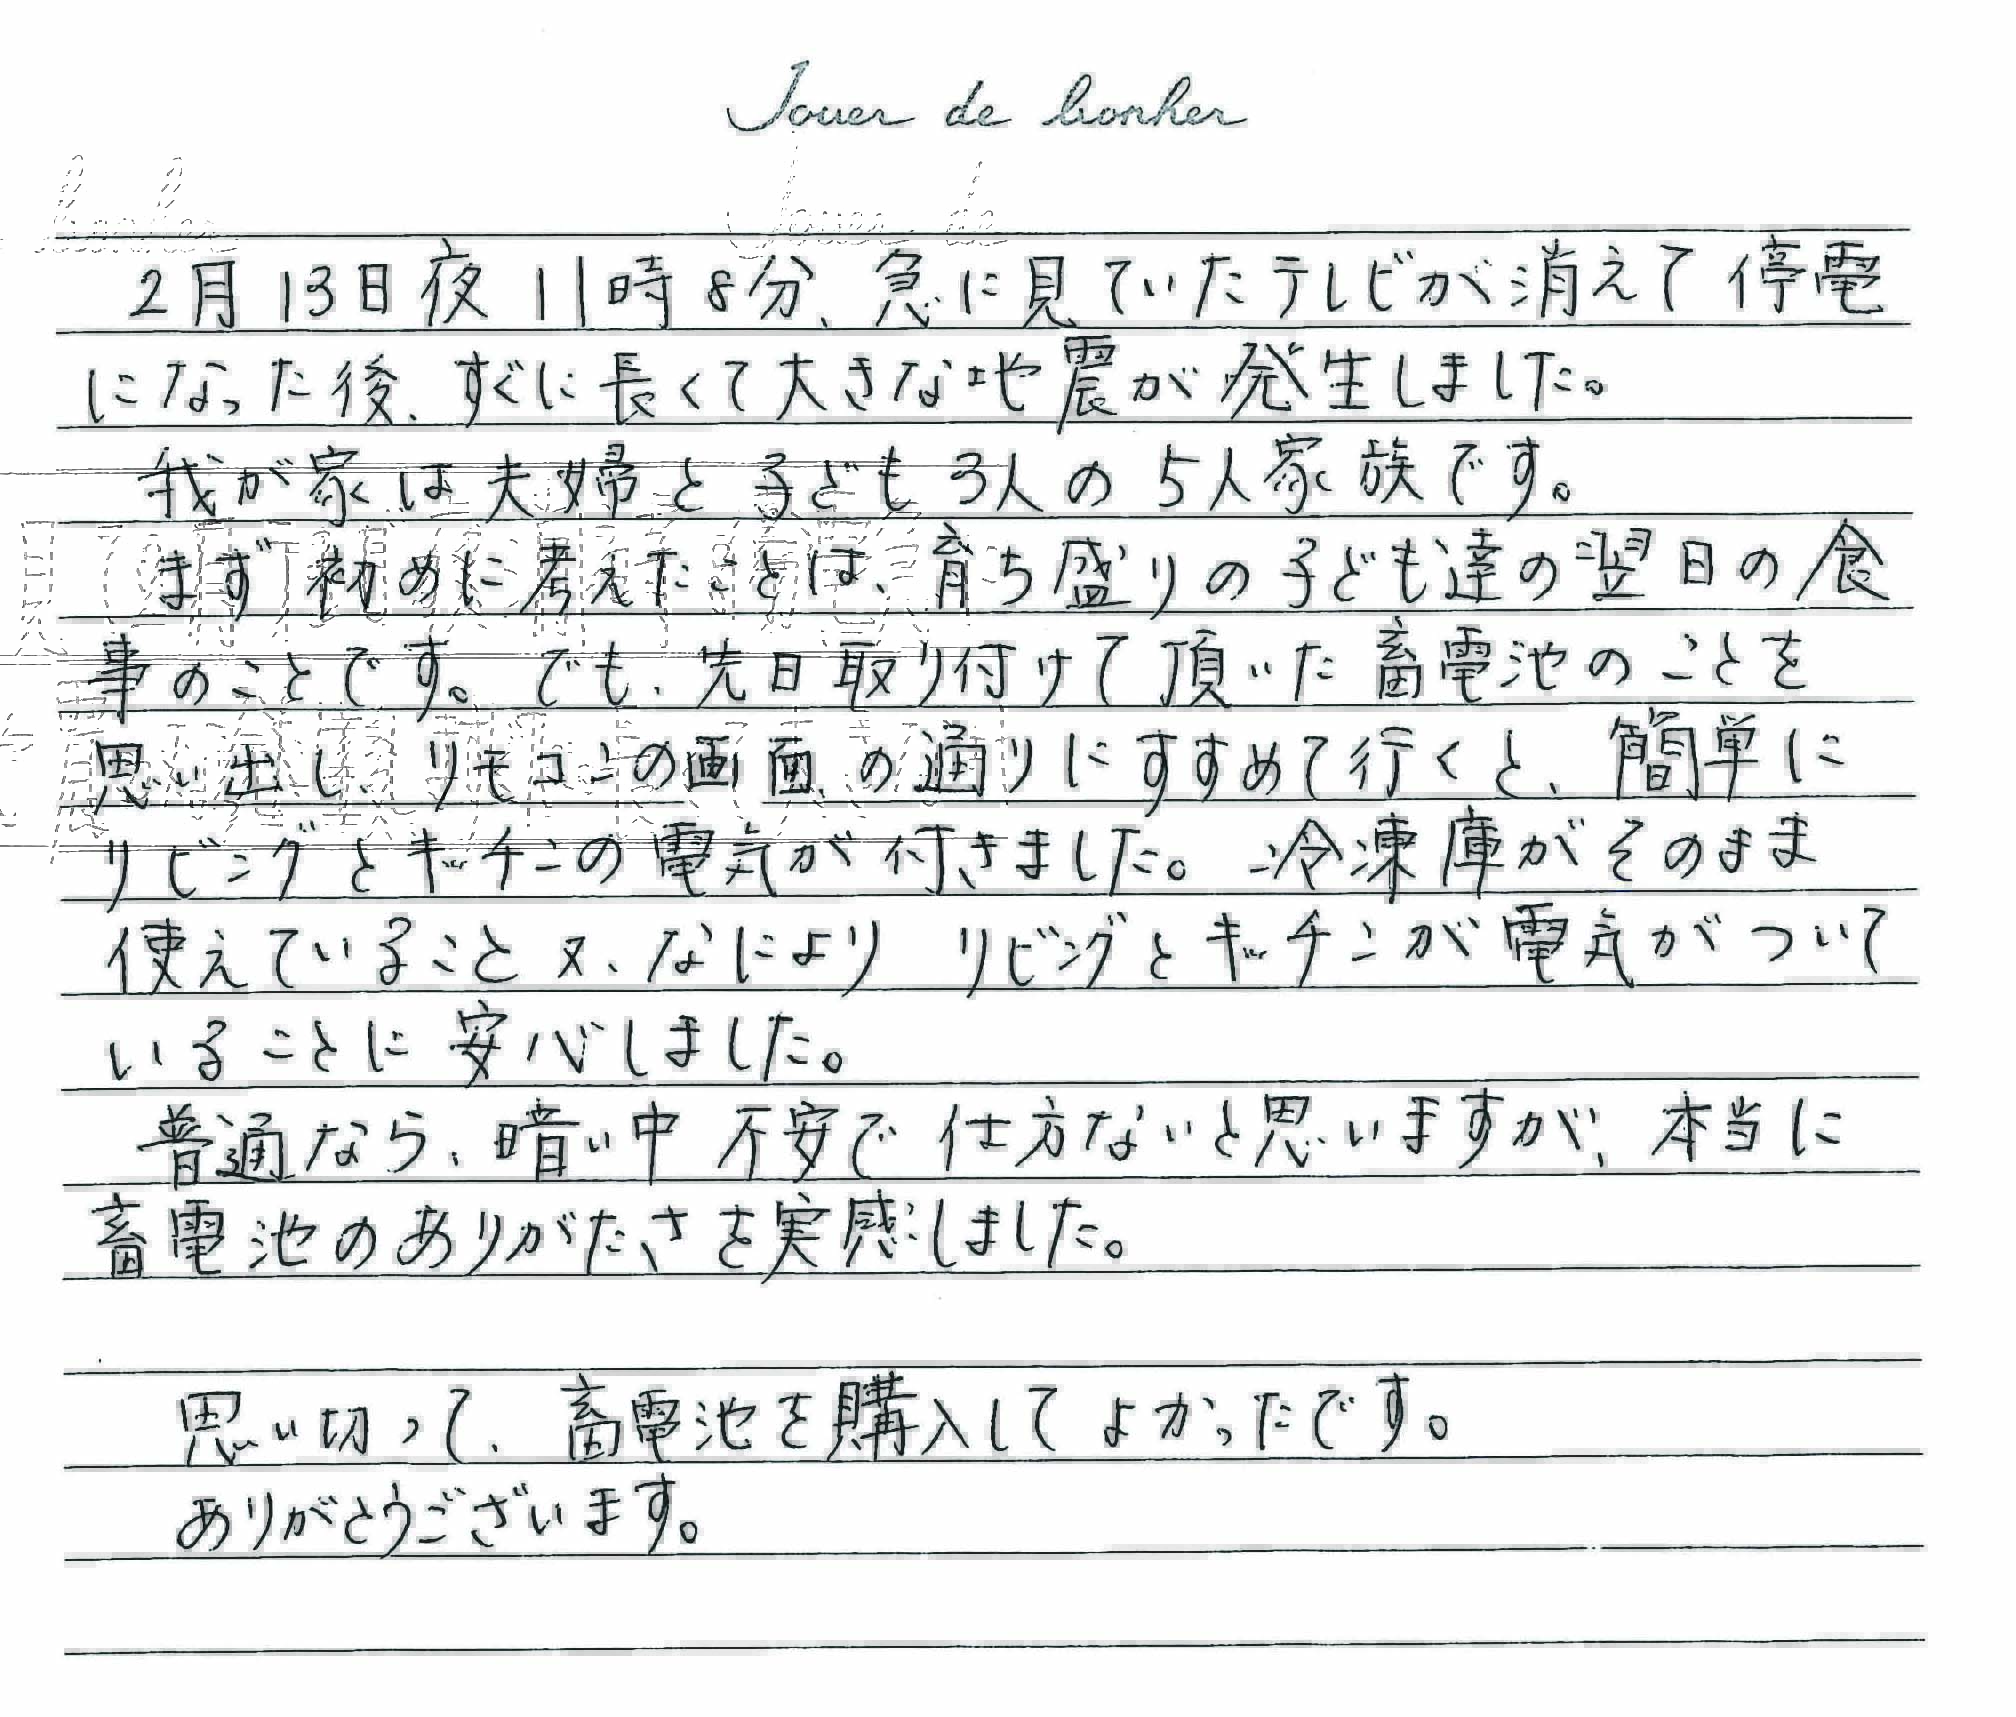 Jouer de bonher
2月13日夜11時8分、急に見ていたテレビが消えて停電
になった後、すぐに長くて大きな地震が発生しました。
我が家は夫婦と子ども3人の5人家族です。
まず初めに考えたことは、育ち盛りの子ども達の翌日の食
事のことです。でも、先日取り付けて頂いた畜電池のことを
思い出し、リモコンの画面の通りにすすめて行くと、簡単に
リビングとキッチンの電気が付きました。冷凍庫がそのまま
使えていること又、なにより リビングとキッチンが電気がついて
いることに安心しました。
普通なら、暗い中不安で仕方ないと思いますが、本当に
畜電池のありがたさを実感しました。
思い切って、畜電池を購入してよかったです。
ありがとうございます。